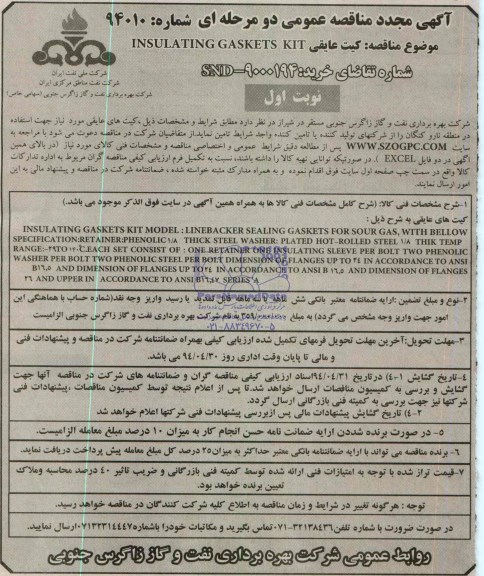 آگهی مجدد مناقصه عمومی دو مرحله ای شماره: ۹۴۰۱۰
موضوع مناقصه: کیت عایقی INSULATING GASKETS KIT
شماره تقاضای خرید: SND-۹۰۰۰۱۹۴
نوبت اول
شرکت ملی نفت ایران
شرکت نفت مناطق مرکزی ایران
شرکت بهره برداری نفت و گاز زاگرس جنوبی (سهامی خاص)
شرکت بهره برداری نفت و گاز زاگرس جنوبی مستقر در شیراز در نظر دارد مطابق شرایط و مشخصات ذیل ،کیت های عایقی مورد نیاز جهت استفاده
در منطقه نارو کنگان را از شرکتهای تولید کننده یا تامین کننده واجد شرایط تامین نماید.از متقاضیان شرکت در مناقصه دعوت می شود با مراجعه به
سایت WWW.SZOGPC.COM پس از مطالعه دقیق شرایط عمومی و اختصاصی مناقصه و مشخصات فنی کالای مورد نیاز (در بالای همین
آگهی در دو فایل EXCEL )، در صورتیکه توانایی تهیه کالا را داشته باشند، نسبت به تکمیل فرم ارزیابی کیفی مناقصه گران مربوط به اداره تدارکات
کالا واقع در سمت چپ صفحه اول سایت فوق اقدام نموده و به همراه مدارک مثبته خواسته شده ، ضمانتنامه شرکت در مناقصه و پیشنهاد مالی به این
امور ارسال نمایند.
۱-شرح مشخصات فنی کالا: (شرح کامل مشخصات فنی کالا ها به همراه همین آگهی در سایت فوق الذکر موجود می باشد.)
کیت های عایقی به شرح ذیل :
INSULATING GASKETS KIT MODEL : LINEBACKER SEALING GASKETS FOR SOUR GAS, WITH BELLOW
SPECIFICATION:RETAINER:PHENOLIC ۱/۸ THICK STEEL WASHER: PLATED HOT-ROLLED STEEL ۱/۸ THIK TEMP
RANGE:-۲۹TO ۱۲۰°C.EACH SET CONSIST OF : ONE RETAINER ONE INSULATING SLEEVE PER BOLT TWO PHENOLIC
WASHER PER BOLT TWO PHENOLIC STEEL PER BOLT DIMENSION OF FLANGES UP TO ۲۴ IN ACCORDANCE TO ANSI
B۱۶,۵ AND DIMENSION OF FLANGES UP TO ۲۴ IN ACCORDANCE TO ANSI B ۱۶,۵ AND DIMENSION OF FLANGES
۲۶ AND UPPER IN ACCORDANCE TO ANSI B۱۶,۴۷ SERIES A
۲-نوع و مبلغ تضمین :ارایه ضمانتنامه معتبر بانکی شش ماهه با سه ماهه قابل تمدید یا رسید واریز وجه نقد(شماره حساب با هماهنگی این
امور جهت واریز وجه مشخص می گردد) به مبلغ به نام شرکت بهره برداری نفت و گاز زاگرس جنوبی الزامیست
۰۲۱-۸۸۳۴۹۶۷۰-۵
۳-مهلت تحویل:آخرین مهلت تحویل فرمهای تکمیل شده ارزیابی کیفی بهمراه ضمانتنامه شرکت در مناقصه و پیشنهادات فنی
و مالی تا پایان وقت اداری روز ۹۴/۰۴/۳۰ می باشد.
۴-تاریخ گشایش ۱-۴) درتاریخ ۹۴/۰۴/۳۱اسناد ارزیابی کیفی مناقصه گران و ضمانتنامه های شرکت در مناقصه آنها جهت
گشایش و بررسی به کمیسیون مناقصات ارسال خواهد شد.تا پس از اعلام نتیجه توسط کمیسیون مناقصات ،پیشنهادات فنی
شرکتها نیز جهت بررسی به کمیته فنی بازرگانی ارسال گردد.
۲-۴) تاریخ گشایش پیشنهادات مالی پس ازبررسی پیشنهادات فنی شرکتها اعلام خواهد شد
۵- در صورت برنده شدن ارایه ضمانت نامه حسن انجام کار به میزان ۱۰ درصد مبلغ معامله الزامیست.
۶- برنده مناقصه می تواند با ارایه ضمانتنامه بانکی معتبر حداکثر به میزان۲۵ درصد کل مبلغ معامله پیش پرداخت دریافت نماید.
۷-قیمت تراز شده با توجه به امتیازات فنی ارائه شده توسط کمیته فنی بازرگانی و ضریب تاثیر ۴۰ درصد محاسبه وملاک
تعیین برنده خواهد بود.
توجه : هرگونه تغییر در شرایط و زمان مناقصه به اطلاع کلیه شرکت کنندگان در مناقصه خواهد رسید.
در صورت ضرورت با شماره تلفن۳۲۱۳۸۴۳۶-۰۷۱تماس بگیرید و مکاتبات خودرا باشماره۰۷۱۳۲۳۱۴۴۴۷ارسال نمایید.
روابط عمومی شرکت بهره برداری نفت و گاز زاگرس جنوبی